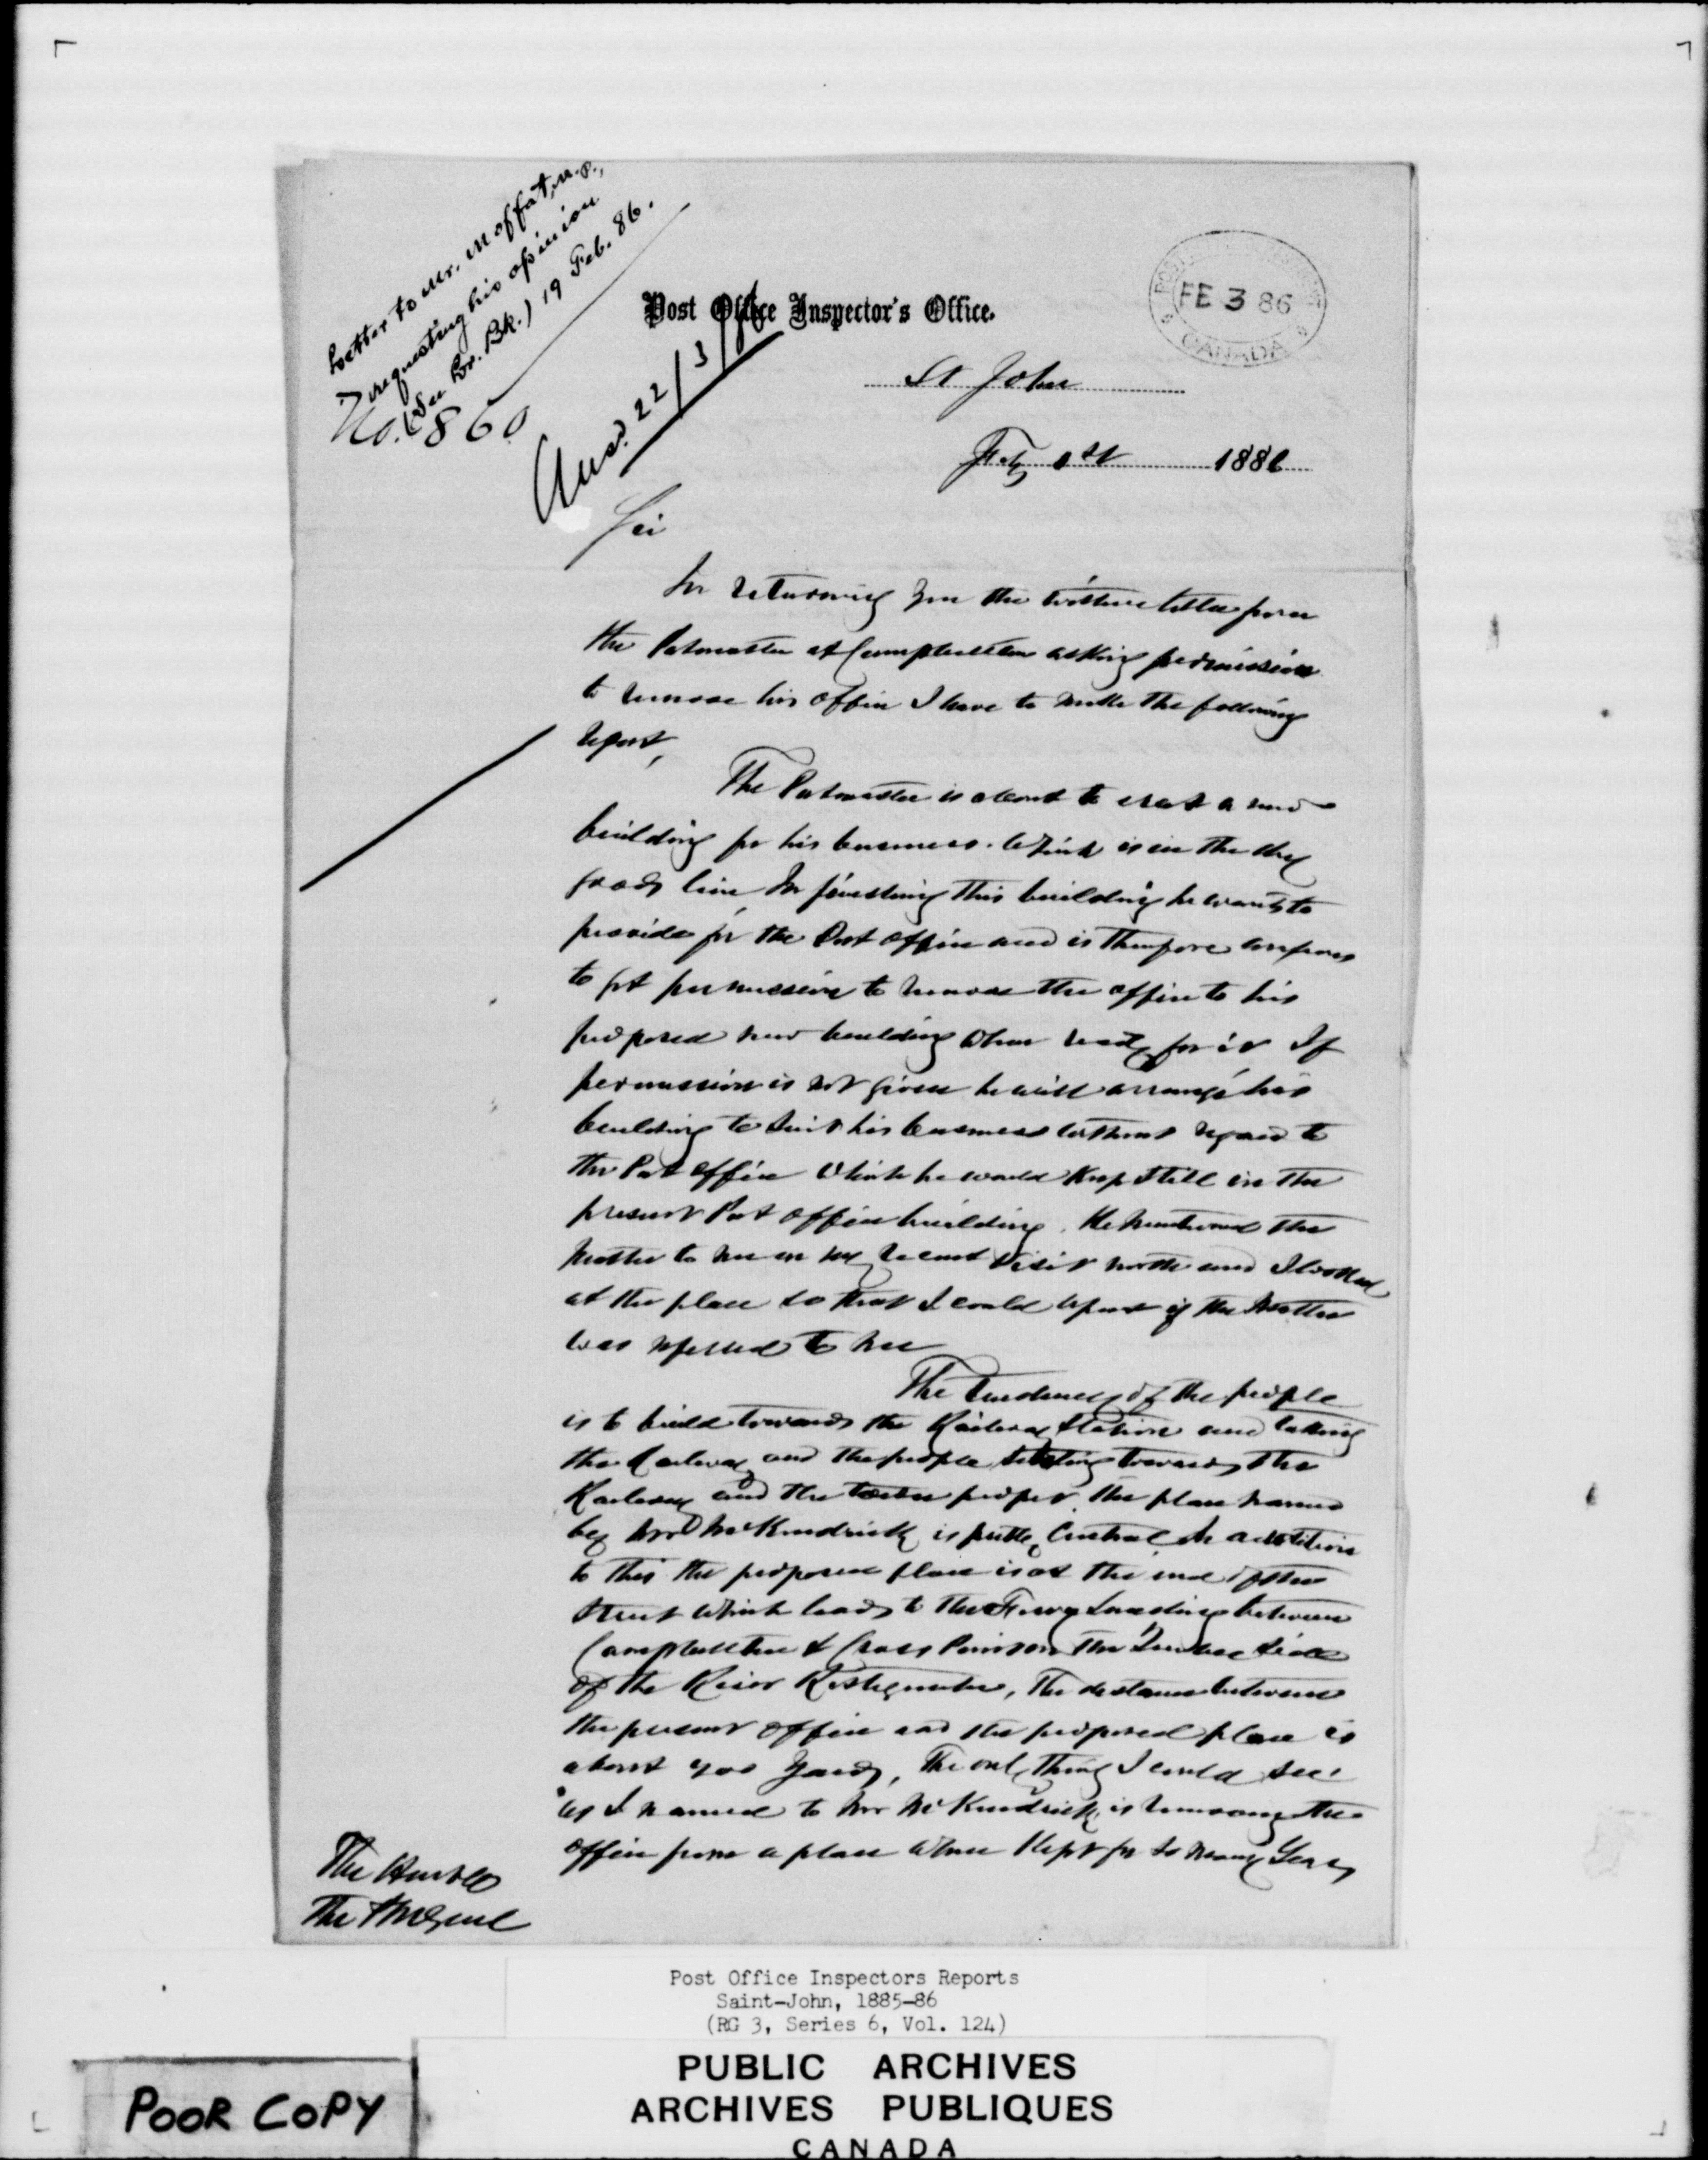 Letter to Mr. Moffat, M.P.,
requesting his opinion
(See Br. Bk.) 19 Feb. 86.
No. 860
Ansd. 22/3/86
Post Office Inspector's Office.
FE 3 86
CANADA
St John
Feby 1st 1886
Sir
In returning you the within letter from
the Postmaster at Campbellton asking permission
to remove his office I have to make the following
report,
The Postmaster is about to erect a new
building for his business which is in the dry
goods line In finishing this building he wants to
provide for the Post office and is therefore anxious
to get permission to remove the office to his
proposed new building when ready for it If
permission is not given he will arrange his
building to suit his business without regard to
the Post office which he would keep still in the
present Post office building. He mentioned the
matter to me on my recent visit north and I looked
at the place so that I could report if the matter
was referred to me
The tendency of the people
is to build towards the Railway Station and taking
the Railway and the people settling towards the
Railway and the town proper the place named
by Mr McKendrick is pretty Central In addition
to this the proposed place is at the end of the
Street which leads to the Ferry Landing between
Campbellton & Cross Point on the Quebec side
of the River Restigouche, The distance between
the present office and the proposed place is
about 400 yards, The only thing I could see
as I named to Mr McKendrick is removing the
office from a place where kept for so many years
The Honble
The P M Genl
Post Office Inspectors Reports
Saint-John, 1885-86
(RG 3, Series 6, Vol. 124)
PUBLIC ARCHIVES
ARCHIVES PUBLIQUES
CANADA
POOR COPY